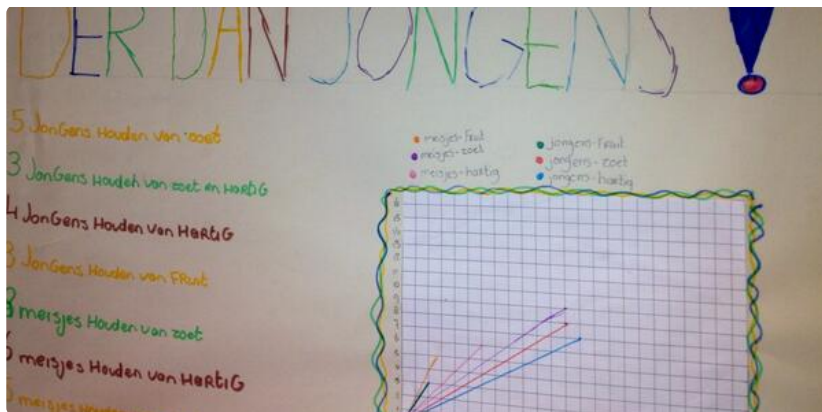 DER DAN JONGENS!
5 JonGens Houden van zoet
3 JonGens Houden van zoet en HARtiG
4 JonGens Houden van HARtiG
3 JonGens Houden van FRuit
8 meisjes Houden van zoet
6 meisjes Houden van HARtiG
5 meisjes Houden
meisjes-fruit
meisjes-zoet
meisjes-hartig
jongens-fruit
jongens-zoet
jongens-hartig
16
15
14
13
12
11
10
9
8
7
6
5
4
3
2
1